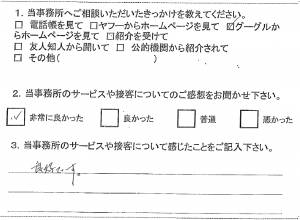 1. 当事務所へご相談いただいたきっかけを教えてください。
□ 電話帳を見て □ヤフーからホームページを見て ☑グーグルか
らホームページを見て □紹介を受けて
□ 友人知人から聞いて □ 公的機関から紹介されて
□ その他( )
2. 当事務所のサービスや接客についてのご感想をお聞かせ下さい。
☑ 非常に良かった □ 良かった □ 普通 □ 悪かった
3. 当事務所のサービスや接客について感じたことをご記入下さい。
です。